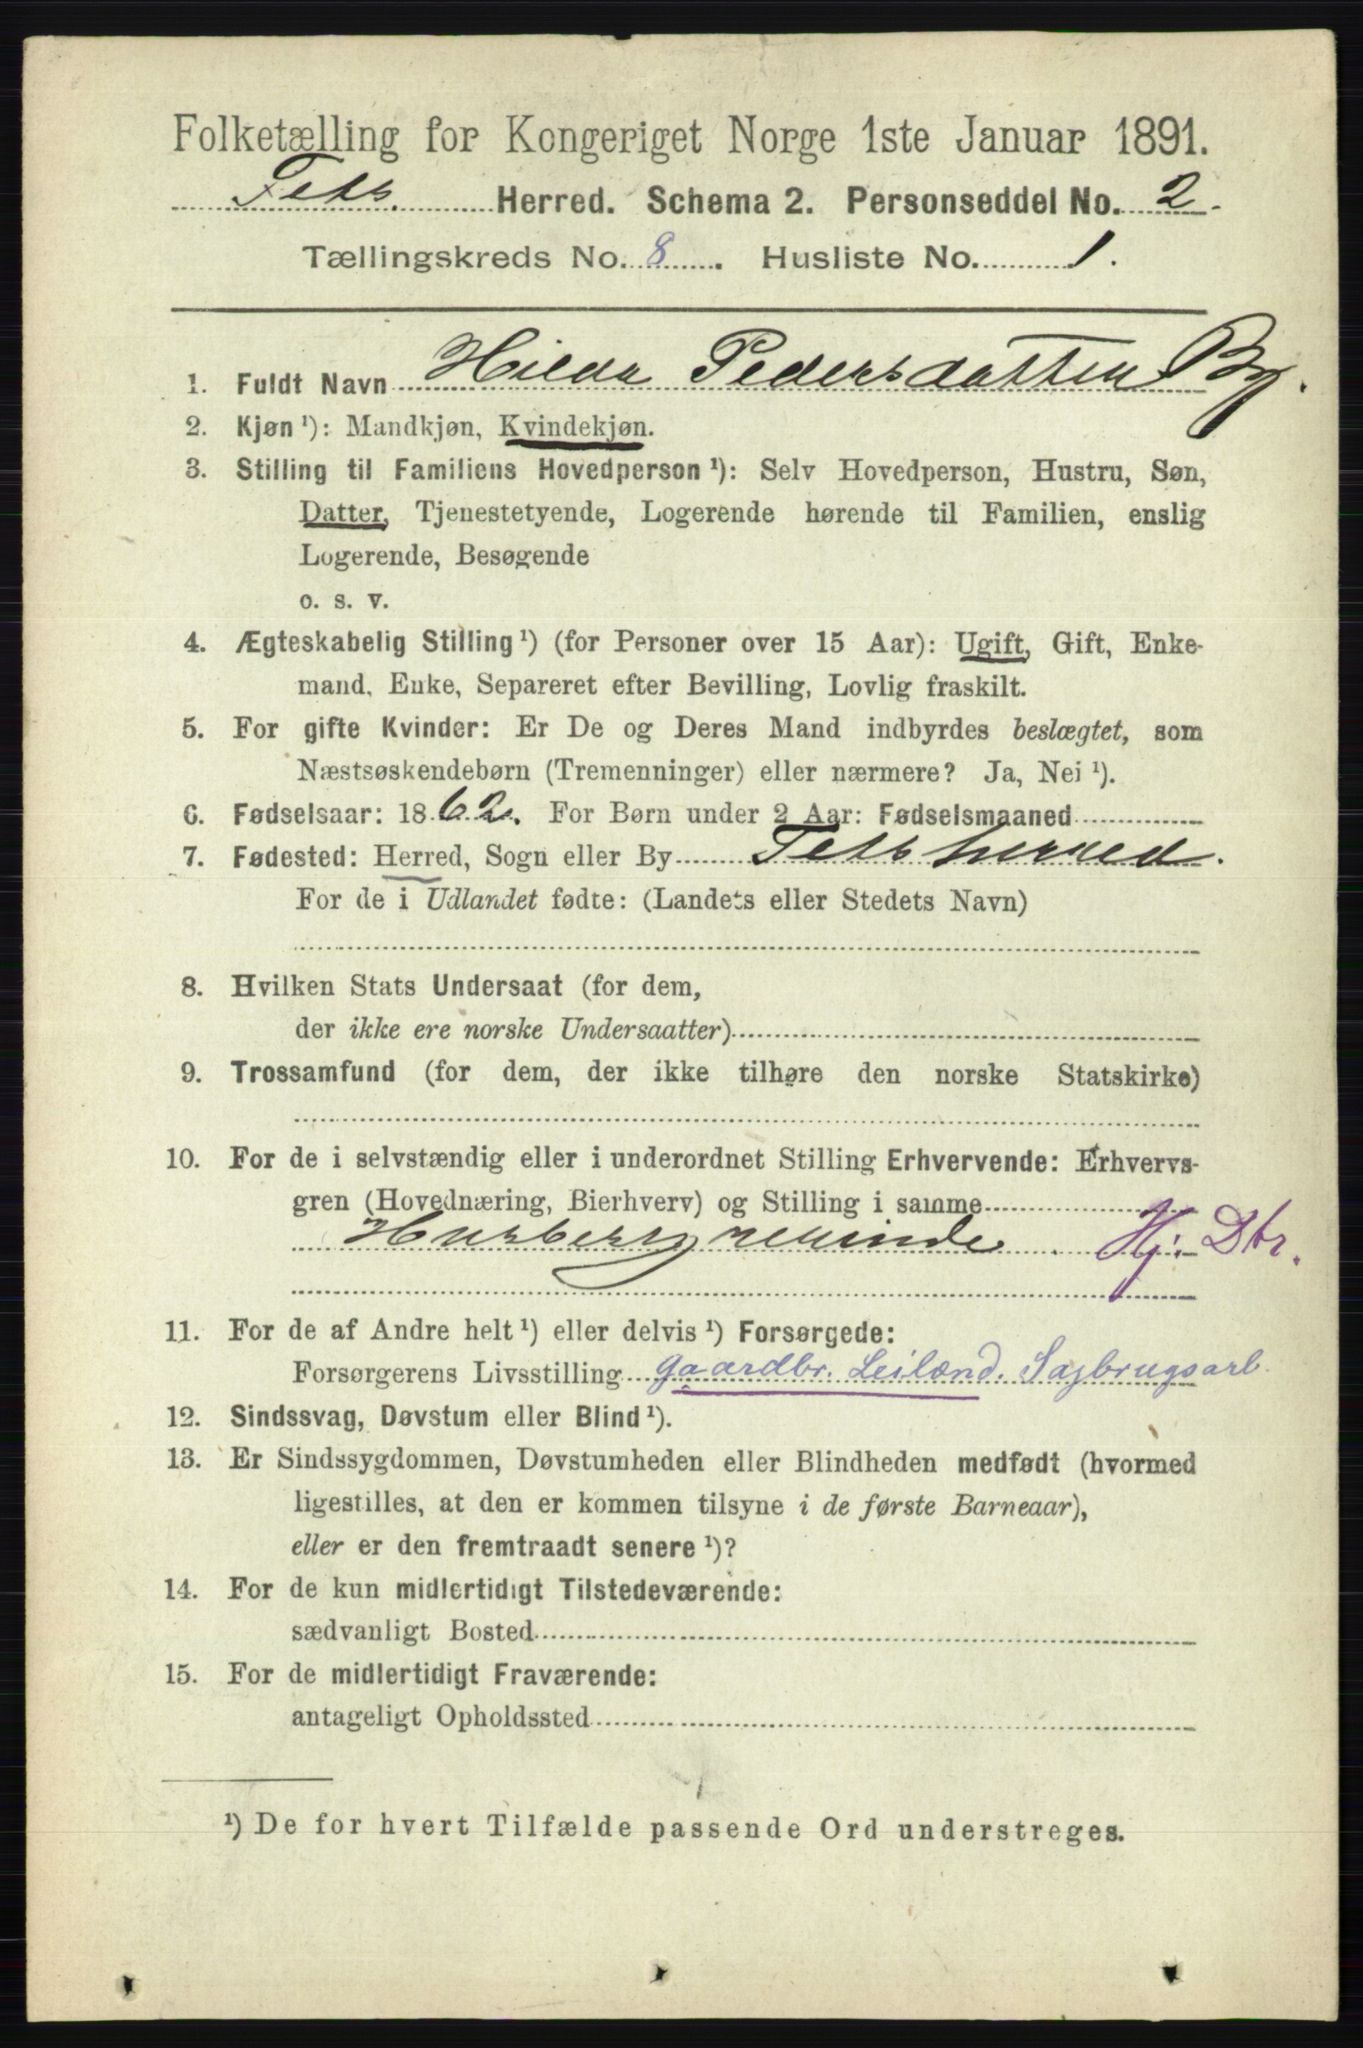 Folketælling for Kongeriget Norge 1ste Januar 1891.
Fets Herred. Schema 2. Personseddel No. 2.
Tællingskreds No. 8. Husliste No. 1.
1. Fuldt Navn Hilda Pedersdatter By.
2. Kjøn ¹): Mandkjøn, Kvindekjøn.
3. Stilling til Familiens Hovedperson ¹): Selv Hovedperson, Hustru, Søn,
Datter, Tjenestetyende, Logerende hørende til Familien, enslig
Logerende, Besøgende
o. s. v.
4. Ægteskabelig Stilling ¹) (for Personer over 15 Aar): Ugift, Gift, Enke-
mand, Enke, Separeret efter Bevilling, Lovlig fraskilt.
5. For gifte Kvinder: Er De og Deres Mand indbyrdes beslægtet, som
Næstsøskendebørn (Tremenninger) eller nærmere? Ja, Nei ¹).
6. Fødselsaar: 1862. For Børn under 2 Aar: Fødselsmaaned
7. Fødested: Herred, Sogn eller By Fets herred.
For de i Udlandet fødte: (Landets eller Stedets Navn)
8. Hvilken Stats Undersaat (for dem,
der ikke ere norske Undersaatter)
9. Trossamfund (for dem, der ikke tilhøre den norske Statskirke)
10. For de i selvstændig eller i underordnet Stilling Erhvervende: Erhvervs-
gren (Hovednæring, Bierhverv) og Stilling i samme
Hj. Dtr.
11. For de af Andre helt ¹) eller delvis ¹) Forsørgede:
Forsørgerens Livsstilling Gaardbr. Leilænd. Sagbrugsarb
12. Sindssvag, Døvstum eller Blind ¹).
13. Er Sindssygdommen, Døvstumheden eller Blindheden medfødt (hvormed
ligestilles, at den er kommen tilsyne i de første Barneaar),
eller er den fremtraadt senere ¹)?
14. For de kun midlertidigt Tilstedeværende:
sædvanligt Bosted
15. For de midlertidigt Fraværende:
antageligt Opholdssted
¹) De for hvert Tilfælde passende Ord understreges.